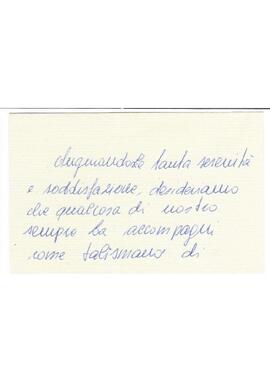 Augurandole tanta serenità
e soddisfazione, desideriamo
che qualcosa di nostro
sempre La accompagni
come talismano di